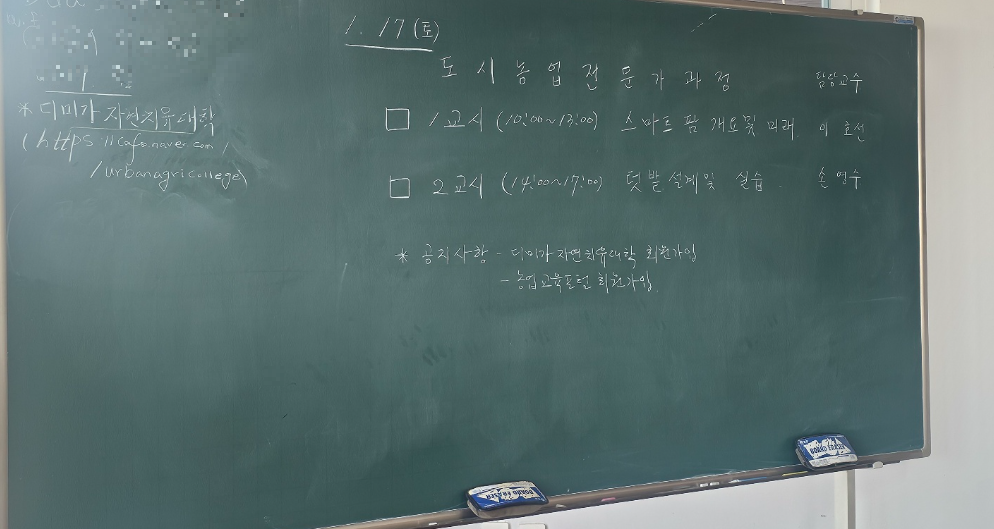 * 디미가 자연치유대학
(https://cafe.naver.com/
/urbanagricollege)
1. 17 (토)
도시농업전문가과정 담당교수
□ 1교시 (10:00~13:00) 스마트팜 개요및 미래 이호선
□ 2교시 (14:00~17:00) 텃밭설계및 실습. 손연수
* 공지사항 - 디미가 자연치유대학 회원가입
- 농업교육포털 회원가입
BOARD ERASER
BOARD ERASER